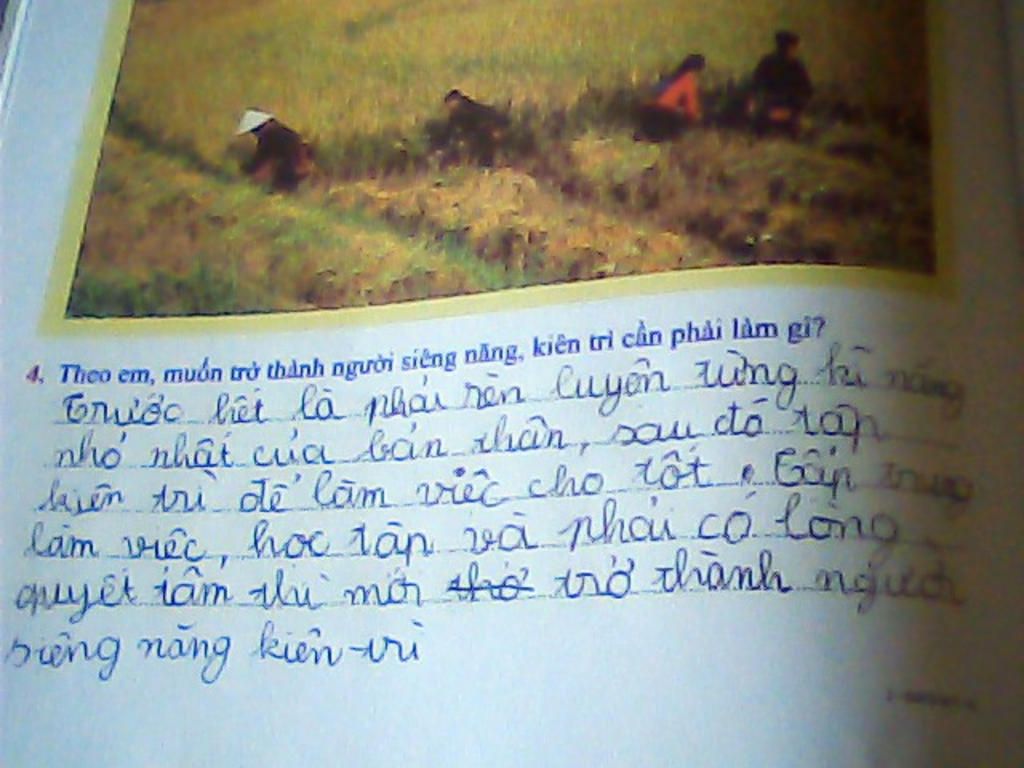 4. Theo em, muốn trở thành người siêng năng, kiên trì cần phải làm gì?
Trước hết là phải rèn luyện từng kĩ năng
nhỏ nhất của bản thân, sau đó tập
kiên trì để làm việc cho tốt. Tập trung
làm việc, học tập và phải có lòng
quyết tâm thì mới thở trở thành người
siêng năng kiên trì